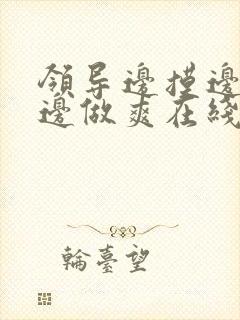 領导邊摸邊
邊做爽在綫
輪臺望